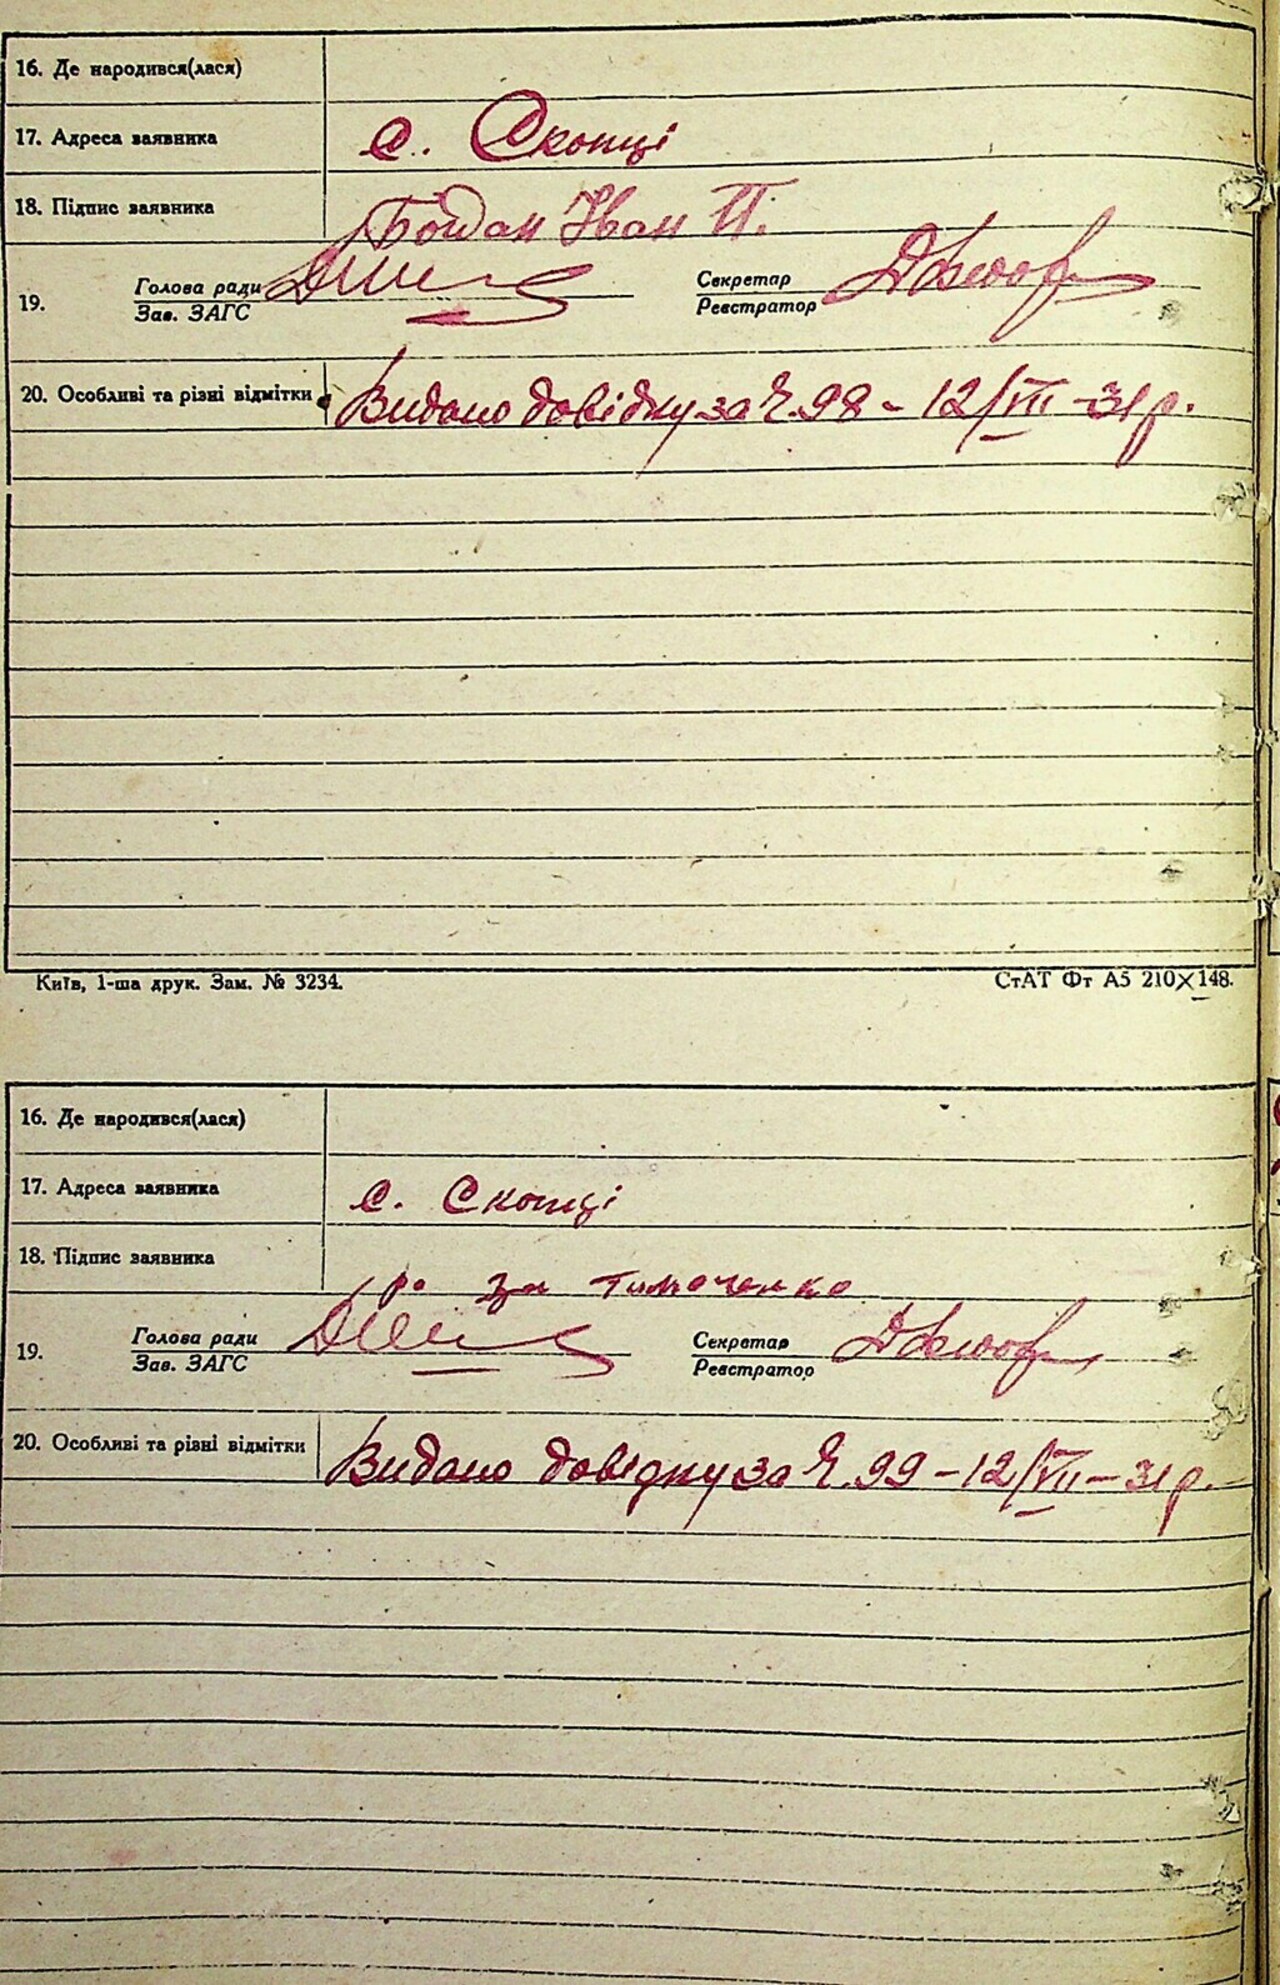 16. Де народився(лася)
17. Адреса заявника с. Скопці
18. Підпис заявника Богдан Іван П.
19. Голова ради Секретар
Зав. ЗАГС Реєстратор
20. Особливі та різні відмітки Видано довідку за Ч. 98 - 12/VII - 31 р.
Київ, 1-ша друк. Зам. № 3234. СтАТ Фт А5 210×148.
16. Де народився(лася)
17. Адреса заявника с. Скопці
18. Підпис заявника за Тимоченко
19. Голова ради Секретар
Зав. ЗАГС Реєстратор
20. Особливі та різні відмітки Видано довідку за Ч. 99 - 12/VII - 31 р.